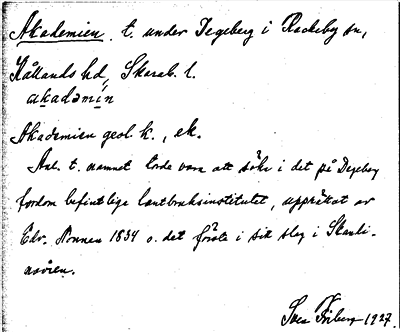 Akademien t. under Degeberg i Rackeby sn,
Kållands hd, Skarab. l.
akadəmín
Akademien geol. k., ek.
Anl. t. namnet torde vara att söka i det på Degeberg
fordom befintliga lantbruksinstitutet, upprättat av
Edv. Nonnen 1834 o. det första i sitt slag i Skandi-
navien.
Sven Friberg 1927.